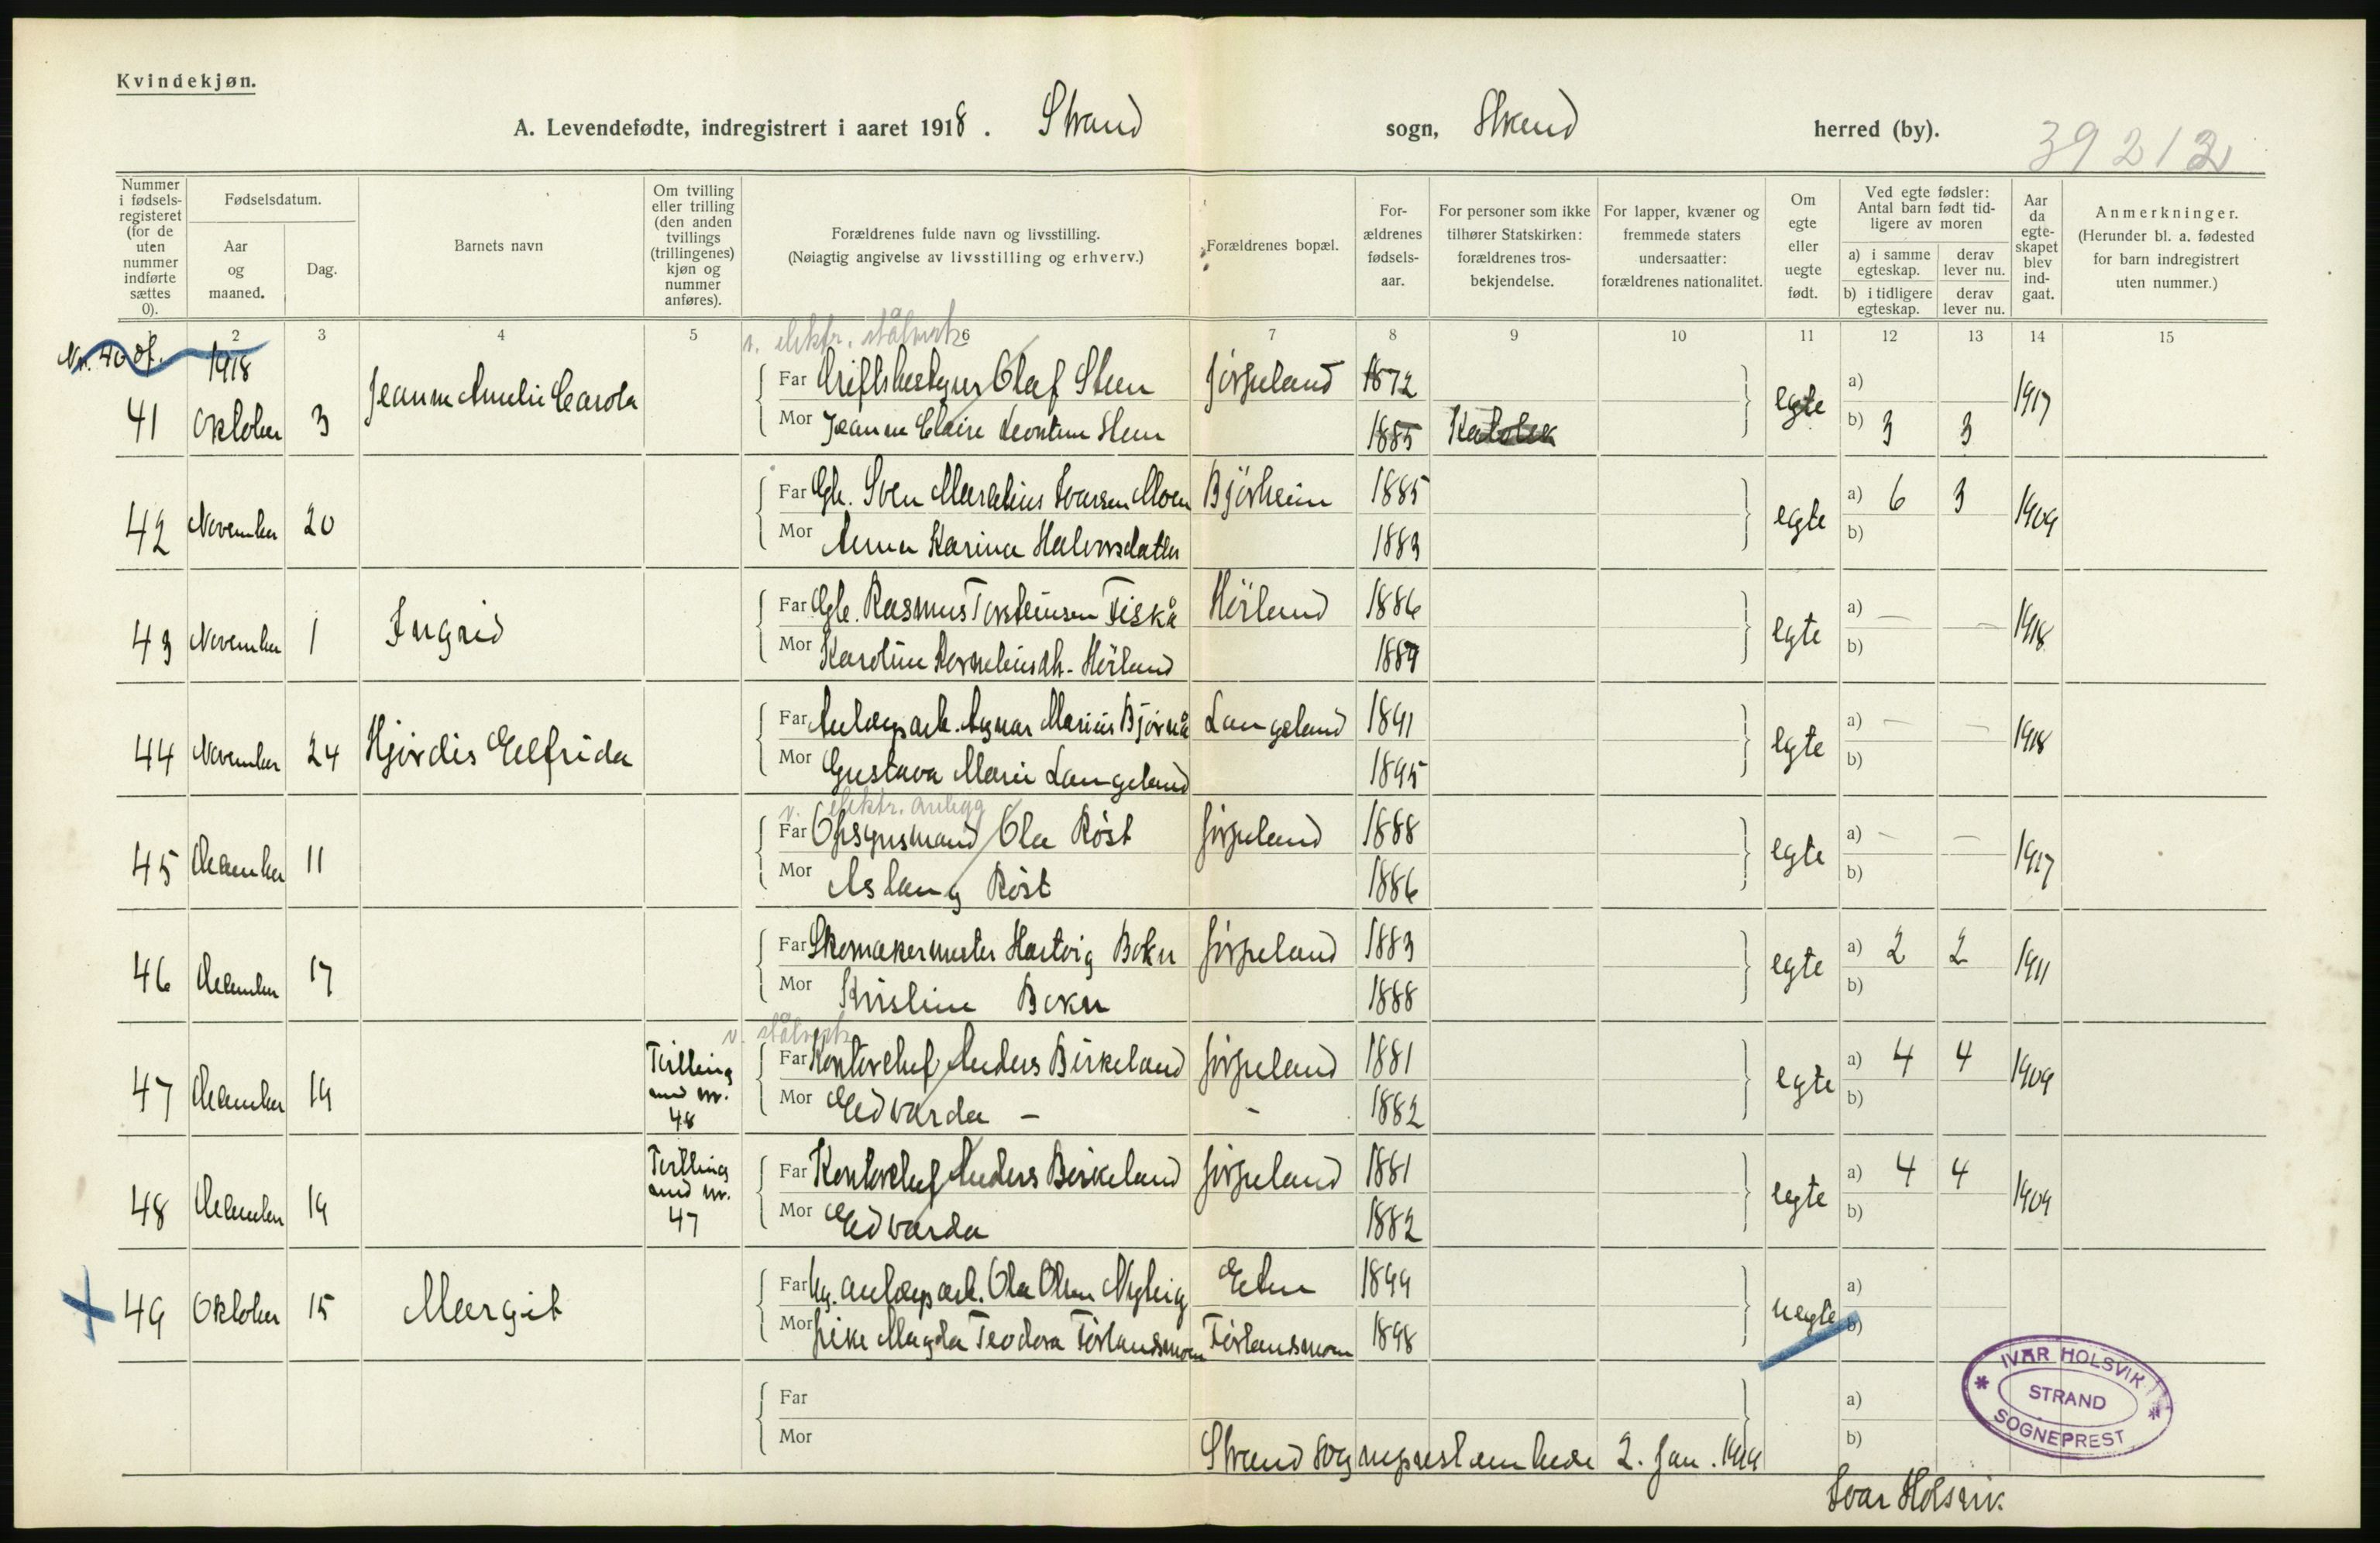 Kvindekjøn.
A. Levendefødte, indregistrert i aaret 1918. Strand sogn, Strand herred (by).
39212
Nummer i fødselsregisteret (for de uten nummer indførte sættes 0).
Fødselsdatum.
Aar og maaned.
Dag.
Barnets navn
Om tvilling eller trilling (den anden tvillings (trillingenes) kjøn og nummer anføres).
Forældrenes fulde navn og livsstilling.
(Nøiagtig angivelse av livsstilling og erhverv.)
Forældrenes bopæl.
Forældrenes fødselsaar.
For personer som ikke tilhører Statskirken: forældrenes trosbekjendelse.
For lapper, kvæner og fremmede staters undersaatter: forældrenes nationalitet.
Om egte eller uegte født.
Ved egte fødsler: Antal barn født tidligere av moren
a) i samme egteskap. derav lever nu.
b) i tidligere egteskap. derav lever nu.
Aar da egteskapet blev indgaat.
Anmerkninger.
(Herunder bl. a. fødested for barn indregistrert uten nummer.)
1 2 3 4 5 6 7 8 9 10 11 12 13 14 15
Nr. 40 of.
v. elektr. stålverk
1918
41 Oktober 3 Jeanne Amelie Carola Far Driftsbestyrer Olaf Steen Jørpeland 1872 egte a) 1917
Mor Jeanne Claire Leontine Steen 1885 Katolsk b) 3 3
42 November 20 Far Gbr. Sven Marselius Ivarsen Moen Björheim 1885 egte a) 6 3 1909
Mor Anna Karina Halvorsdatter 1883 b)
43 November 1 Ingrid Far Gbr. Rasmus Torsteinsen Fiskå Hörland 1886 egte a) — — 1918
Mor Karoline Korneliusdt. Hörland 1889 b)
44 November 24 Hjördis Elfrida Far Anlægsarb. Agnar Marius Bjørnå Langeland 1891 egte a) — — 1918
Mor Gustava Marie Langeland 1895 b)
v. elektr. anlegg
45 December 11 Far Opsynsmand Ola Röst Jørpeland 1888 egte a) — — 1917
Mor Aslaug Röst 1886 b)
46 December 17 Far Skomakermester Hartvig Bokn Jørpeland 1883 egte a) 2 2 1911
Mor Kristine Bokn 1888 b)
v. stålverk
47 December 19 Tvilling med nr. 48 Far Kontorchef Anders Birkeland Jørpeland 1881 egte a) 4 4 1909
Mor Edvarda — - 1882 b)
48 December 19 Tvilling med nr. 47 Far Kontorchef Anders Birkeland Jørpeland 1881 egte a) 4 4 1909
Mor Edvarda 1882 b)
49 Oktober 15 Margit Far Ug. anlægsarb. Ola Olsen Etne 1899 uegte a)
Mor Pike Magda Teodora Törlandsmoen Törlandsmoen 1898 b)
Far a)
Mor b)
Strand sogneprestembede 2. Jan. 1919
IVAR HOLSVIK
STRAND
SOGNEPREST
Ivar Holsvik